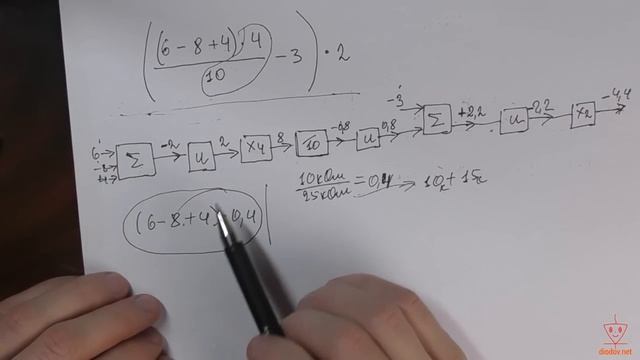 ((6 − 8 + 4) · 4 / 10 − 3) · 2
−3
6 −8 4 Σ −2 И 2 X4 8 :10 −0,8 И 0,8 Σ +2,2 И −2,2 X2 −4,4
10кОм / 25кОм = 0,4 → 10к + 15к
(6 − 8 + 4) 0,4
diodov.net